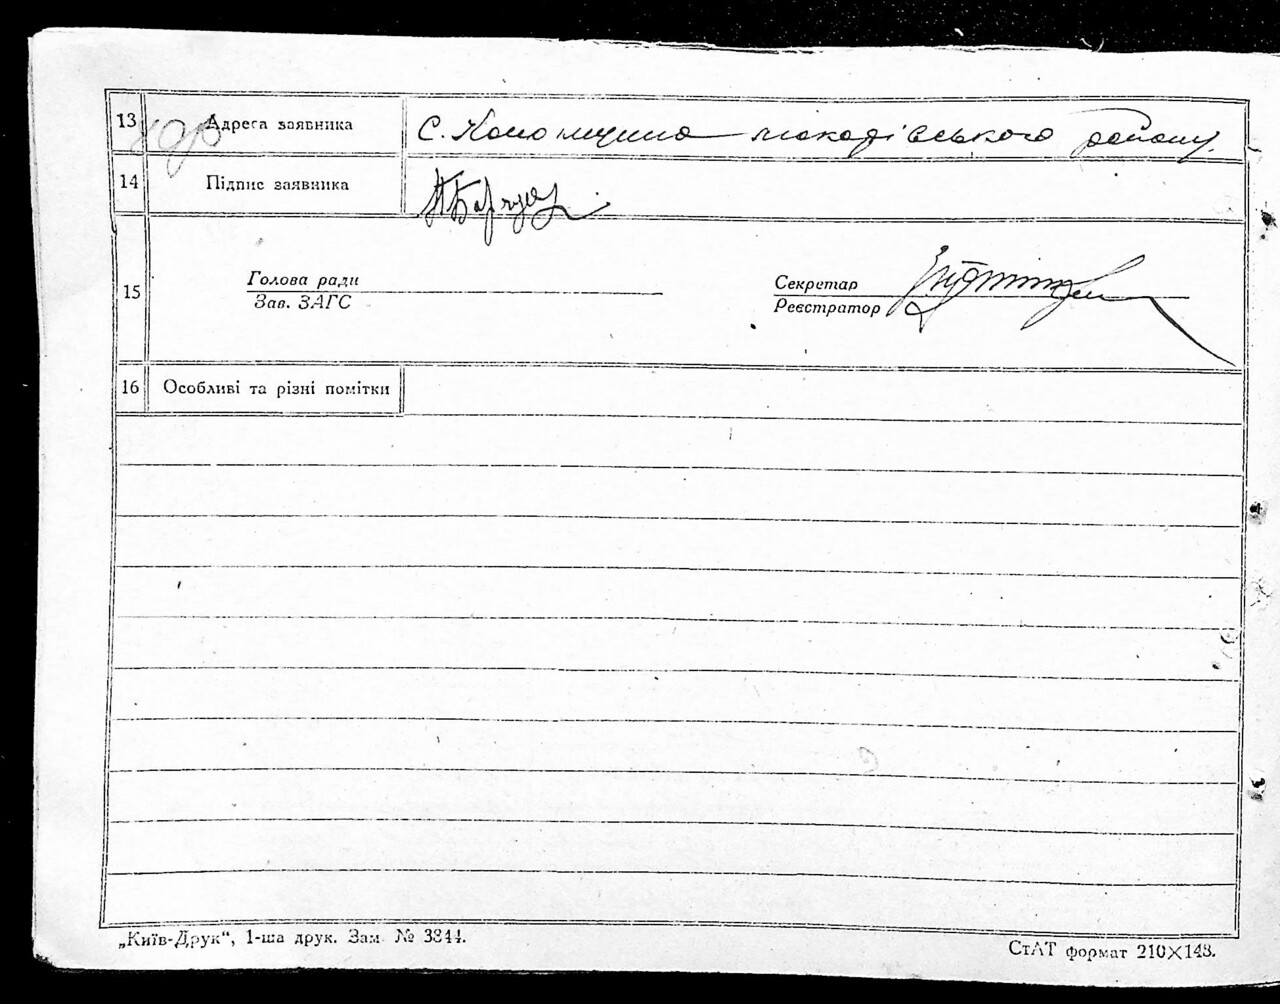 13 Адреса заявника с. Колонщина макарівського району
14 Підпис заявника
15 Голова ради
Зав. ЗАГС
Секретар
Реєстратор
16 Особливі та різні помітки
„Київ-Друк“, 1-ша друк. Зам № 3344.
СтАТ формат 210×148.